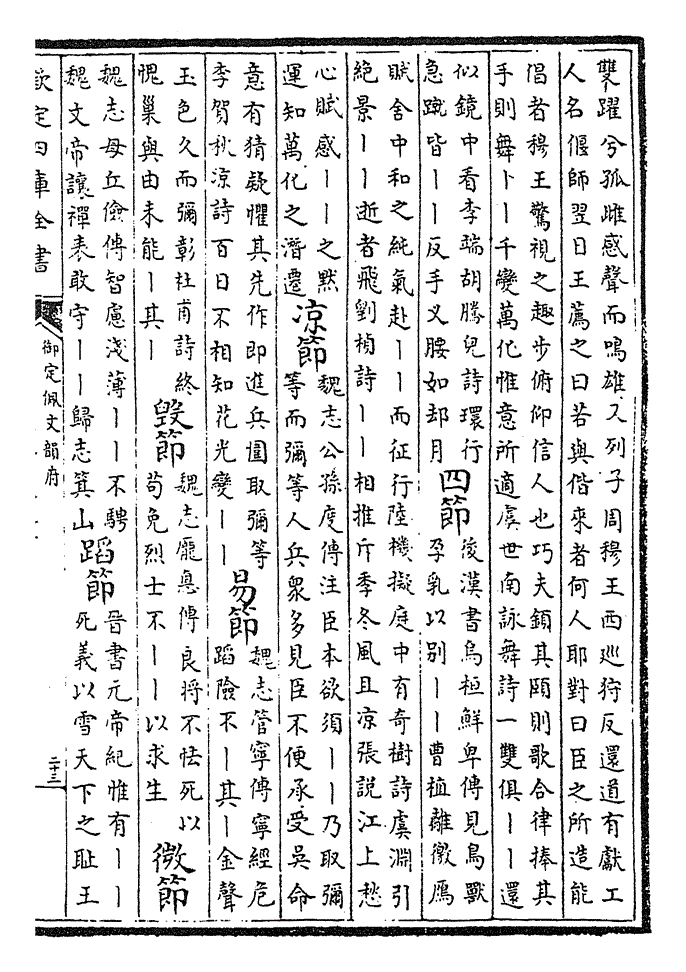 雙躍兮孤雌感聲而鳴雄又列子周穆王西巡狩反還道有獻工
人名偃師翌日王薦之曰若與偕來者何人耶對曰臣之所造能
倡者穆王驚視之趣步俯仰信人也巧夫鎖其頤則歌合律捧其
手則舞卜丨千變萬化惟意所適虞世南詠舞詩一雙俱丨丨還
似鏡中看李端胡騰兒詩環行
急蹴皆丨丨反手叉腰如却月
四節
後漢書烏桓鮮卑傳見鳥獸
孕乳以别丨丨曹植離徼鴈
賦含中和之純氣赴丨丨而征行陸機擬庭中有奇樹詩虞淵引
絶景丨丨逝者飛劉楨詩丨丨相推斥季冬風且凉張説江上愁
心賦感丨丨之黙
運知萬化之潛遷
凉節
魏志公孫度傳注臣本欲須丨丨乃取彌
等而彌等人兵衆多見臣不便承受吳命
意有猜疑懼其先作即進兵圍取彌等
李賀秋凉詩百日不相知花光變丨丨
易節
魏志管寧傳寧經危
蹈險不丨其丨金聲
玉色久而彌彰杜甫詩終
愧巢與由未能丨其丨
毁節
魏志龐悳傳良將不怯死以
苟免烈士不丨丨以求生
微節
魏志毋丘儉傳智慮淺薄丨丨不騁
魏文帝讓禪表敢守丨丨歸志箕山
蹈節
晉書元帝紀惟有丨丨
死義以雪天下之耻王
欽定四庫全書
御定佩文韻府
二十三